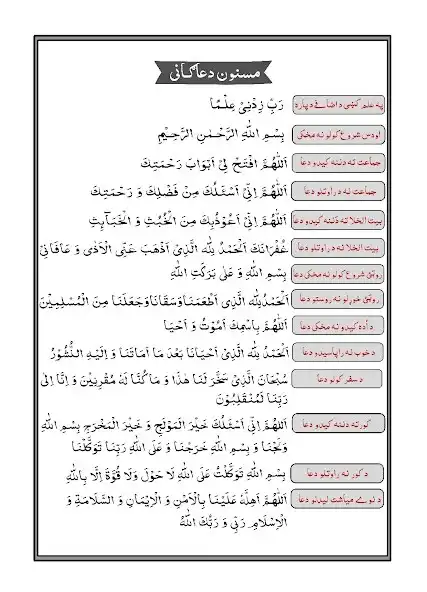 مسنون دعاګانې
په علم کښې د اضافے دپاره رَبِّ زِدْنِیْ عِلْمًا
اودس شروع کولو نه مخکې بِسْمِ اللهِ الرَّحْمٰنِ الرَّحِیْمِ
جماعت ته د ننه کیدو دعا اَللّٰهُمَّ افْتَحْ لِیْ اَبْوَابَ رَحْمَتِكَ
جماعت نه د راوتلو دعا اَللّٰهُمَّ اِنِّیْ اَسْئَلُكَ مِنْ فَضْلِكَ وَ رَحْمَتِكَ
بیت الخلا ته د ننه کیدو دعا اَللّٰهُمَّ اِنِّیْ اَعُوْذُبِكَ مِنَ الْخُبُثِ وَ الْخَبَآئِثِ
بیت الخلا نه د راوتلو دعا غُفْرَانَكَ اَلْحَمْدُ لِلّٰهِ الَّذِیْ اَذْهَبَ عَنِّی الْاَذٰی وَ عَافَانِیْ
روټئ شروع کولو نه مخکې دعا بِسْمِ اللهِ وَ عَلٰی بَرَکَتِ اللهِ
روټئ خوړلو نه روستو دعا اَلْحَمْدُلِلّٰهِ الَّذِی اَطْعَمَنَاوَسَقَانَاوَجَعَلَنَا مِنَ الْمُسْلِمِیْنَ
د اُده کیدو نه مخکې دعا اَللّٰهُمَّ بِاسْمِكَ اَمُوْتُ وَ اَحْیَا
د خوب نه راپاسیدو دعا اَلْحَمْدُ لِلّٰهِ الَّذِیْ اَحْیَانَا بَعْدَ مَا اَمَاتَنَا وَ اِلَیْهِ النُّشُوْرُ
د سفر کولو دعا سُبْحَانَ الَّذِیْ سَخَّرَ لَنَا هٰذَا وَ مَا کُنَّا لَهٗ مُقْرِنِیْنَ وَ اِنَّا اِلٰی
رَبِّنَا لَمُنْقَلِبُوْنَ
کور ته د ننه کیدو دعا اَللّٰهُمَّ اِنِّیْ اَسْئَلُكَ خَیْرَ الْمَوْلَجِ وَ خَیْرَ الْمَخْرَجِ بِسْمِ اللهِ
وَلَجْنَا وَ بِسْمِ اللهِ خَرَجْنَا وَ عَلَی اللهِ رَبِّنَا تَوَکَّلْنَا
د کور نه راوتلو دعا بِسْمِ اللهِ تَوَکَّلْتُ عَلَی اللهِ لَا حَوْلَ وَلَا قُوَّةَ اِلَّا بِاللهِ
د نوے میاشت لیدلو دعا اَللّٰهُمَّ اَهِلَّهٗ عَلَیْنَا بِالْاَمْنِ وَ الْاِیْمَانِ وَ السَّلَامَةِ وَ
الْاِسْلَامِ رَبِّیْ وَ رَبُّكَ اللهُ